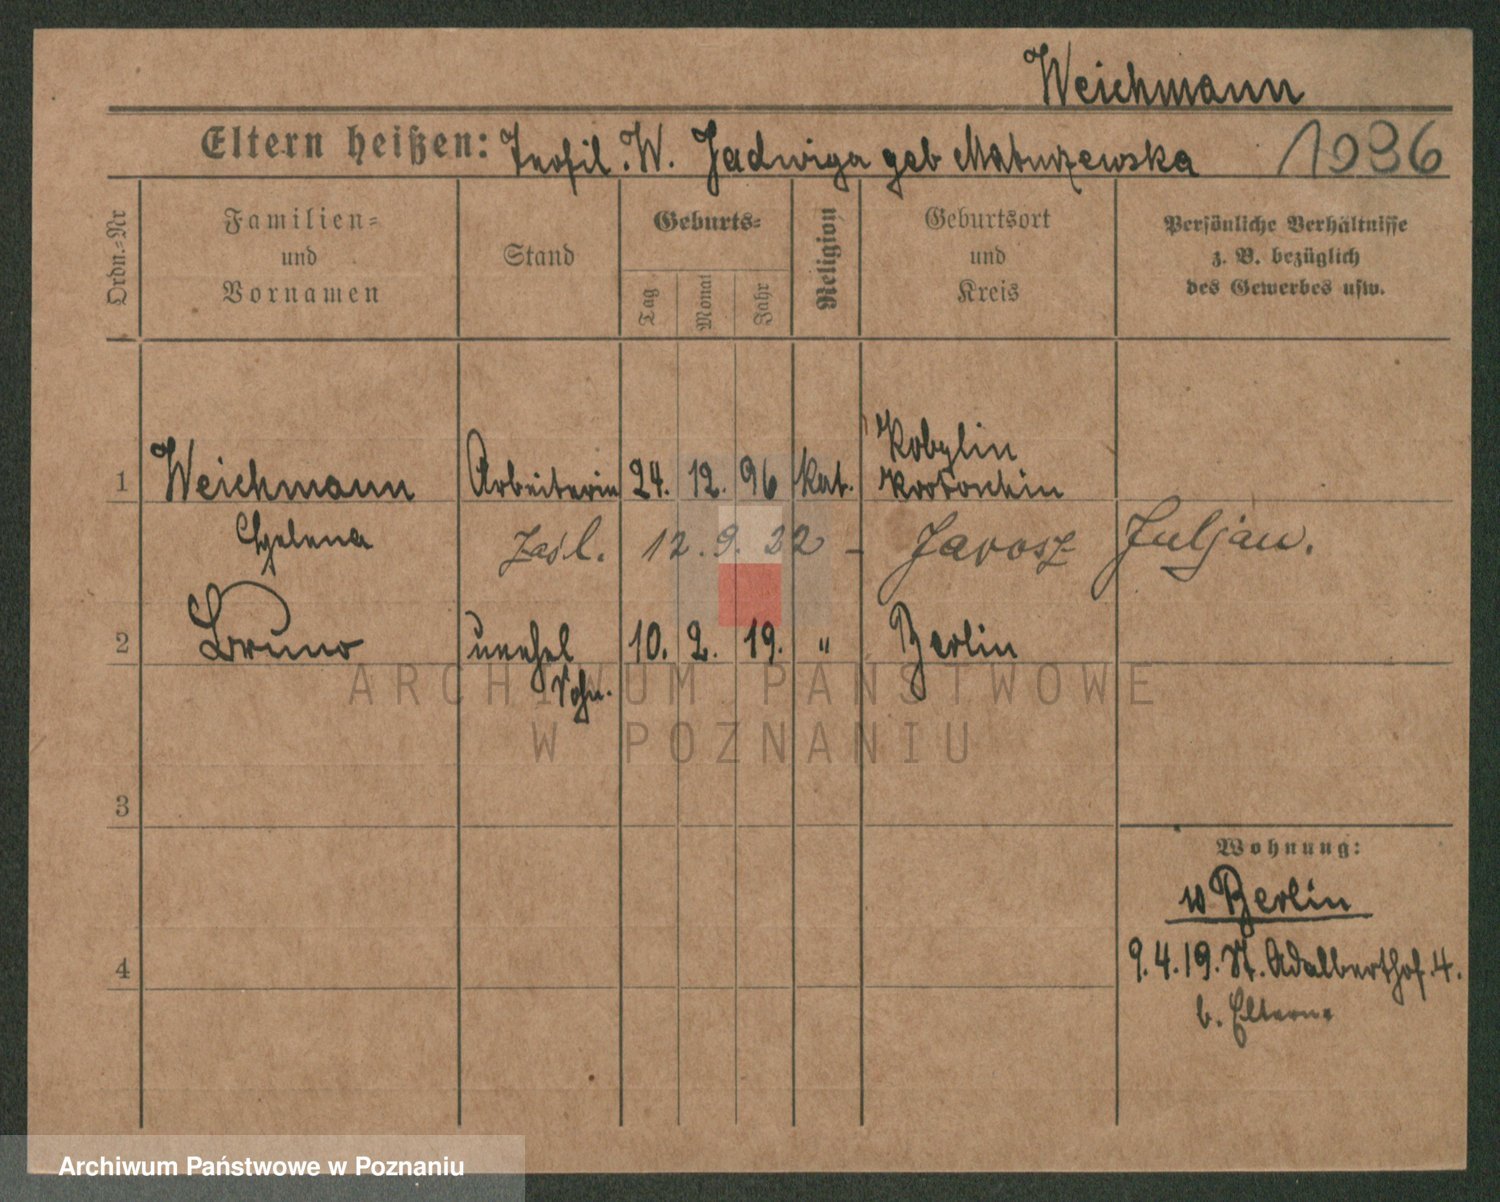 Weichmann
Eltern heißen: Teofil W. Jadwiga geb
1936
Ordn.=Nr
Familien= und Vornamen
Stand
Geburts=
Tag
Monat
Jahr
Religion
Geburtsort und Kreis
Persönliche Verhältnisse
z. B. bezüglich
des Gewerbes usw.
Kobylin
1 Weichmann Arbeiterin 24. 12. 96 kat. Krotoschin
Helena
zasl. 12.9.22 – Jarosz Juljan.
2 Bruno unehel 10. 2. 19. " Berlin
Sohn.
3
Wohnung:
w Berlin
4
9.4.19. St. Adalberthof. 4.
b. Eltern
ARCHIWUM PAŃSTWOWE
W POZNANIU
Archiwum Państwowe w Poznaniu